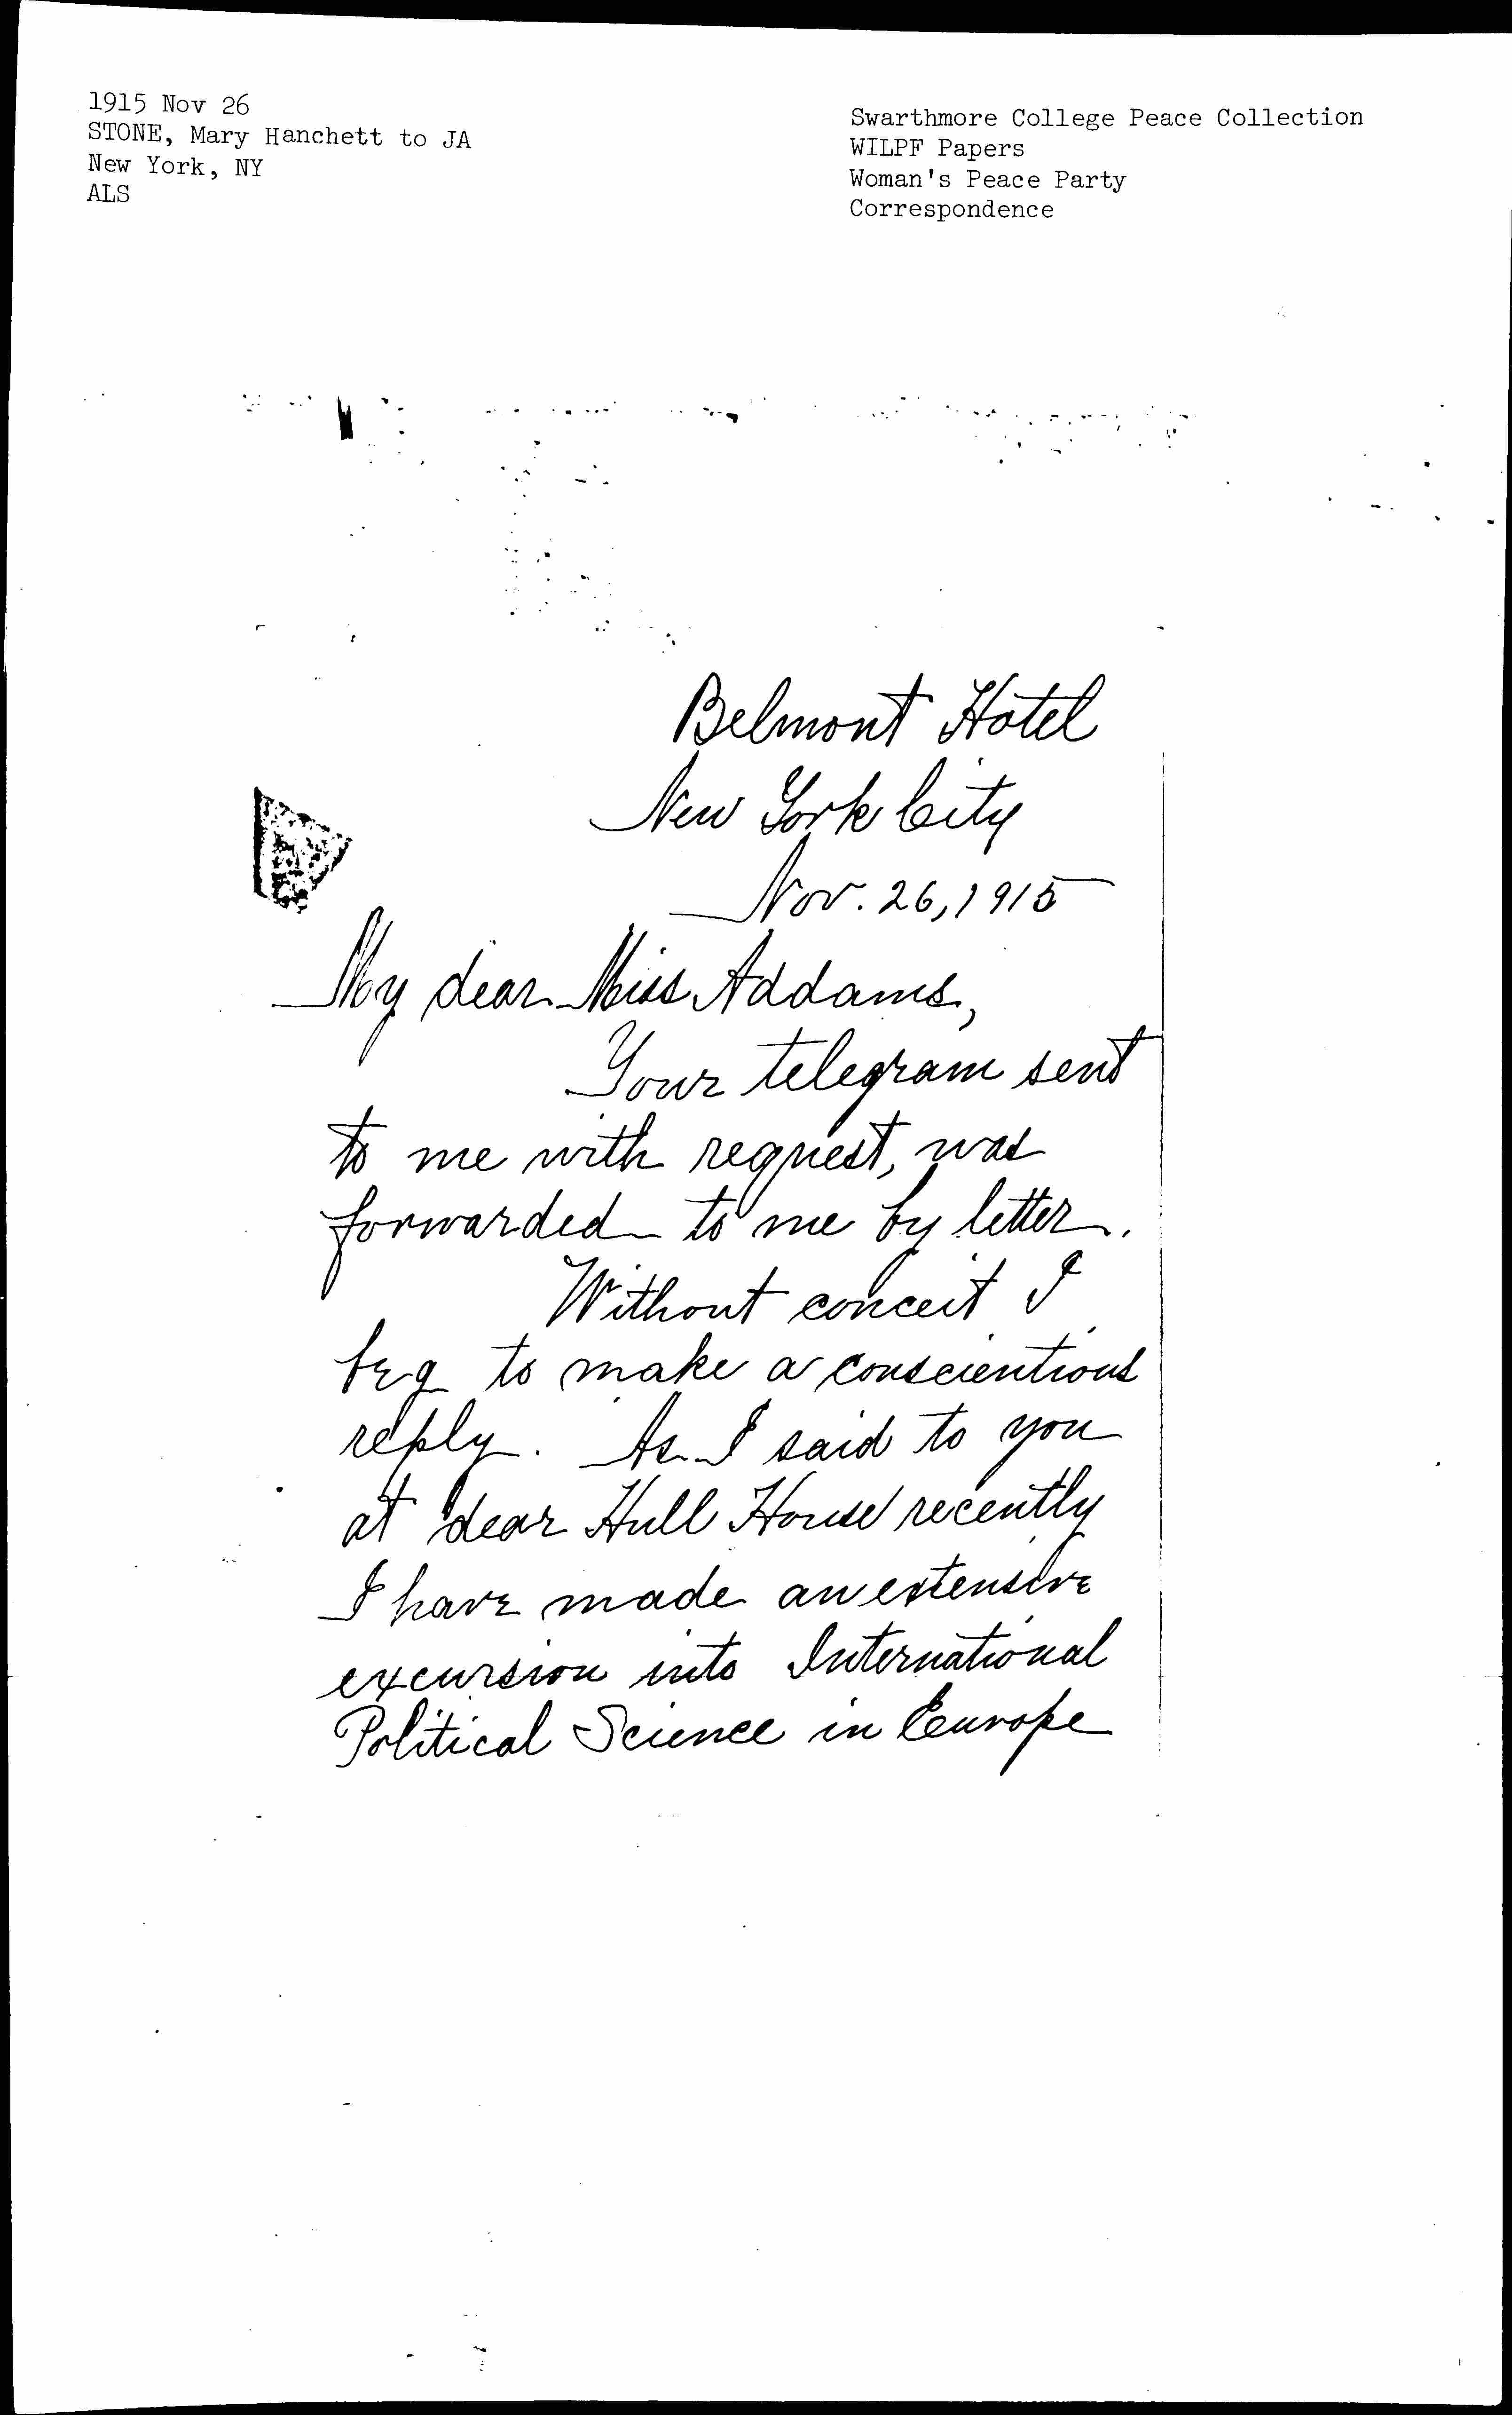 1915 Nov 26
STONE, Mary Hanchett to JA
New York, NY
ALS
Swarthmore College Peace Collection
WILPF Papers
Woman's Peace Party
Correspondence
Belmont Hotel
New York City
Nov. 26, 1915
My dear Miss Addams,
Your telegram sent
to me with request, was
forwarded to me by letter.
Without conceit I
beg to make a conscientious
reply. As I said to you
at dear Hull House recently
I have made an extensive
excursion into International
Political Science in Europe